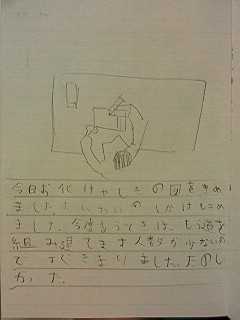 今日お化けやしきの図をきめ
ました。だいたいのしかけもきめ
ました。今度
組み
てます人数が少ないの
ですぐきまりました。たのし
かった。